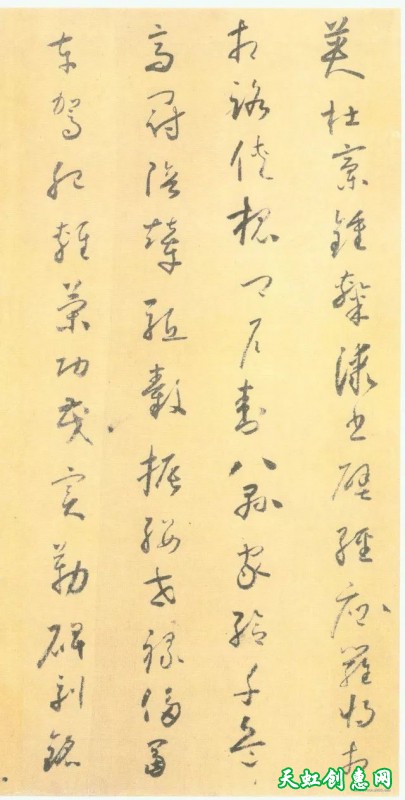 英杜稾鍾隸漆書壁經府羅將相
相路俠槐卿戶封八縣家給千兵
高冠陪輦驅轂振纓世祿侈富
車駕肥輕策功茂實勒碑刻銘
天虹创惠网